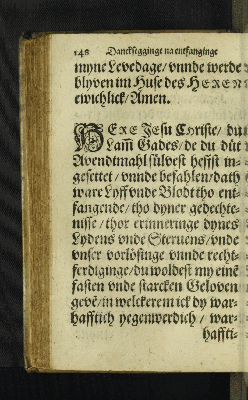 148 Dancksegginge na entfanginge
myne Levedage/ vnnde werde
blyven im Huse des HEREN
ewichlick/ Amen.
HERE Jesu Christe/ du
Lam̃ Gades/ de du dut
Avendtmahl sülvest heffst in-
gesettet/ vnnde befahlen/ dath
ware Lyff vnde Blodt tho ent-
fangende/ tho dyner gedechte-
nisse/ thor erinneringe dynes
Lydens vnde Stervens/ vnde
vnser vorlösinge vnnde recht-
ferdiginge/ du woldest my einē
fasten vnde starcken Geloven
gevē/ in welckerem ick dy war-
hafftich yegenwerdich/ war-
haffti-